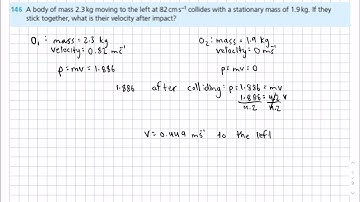 146 A body of mass 2.3 kg moving to the left at 82 cm s⁻¹ collides with a stationary mass of 1.9 kg. If they
stick together, what is their velocity after impact?
O₁: mass = 2.3 kg
velocity = 0.82 ms⁻¹
p = mv = 1.886
O₂: mass = 1.9 kg
velocity = 0 ms⁻¹
p = mv = 0
1.886 after colliding: p = 1.886 = mv
1.886 = 4.2 v
4.2 4.2
v = 0.449 ms⁻¹ to the left